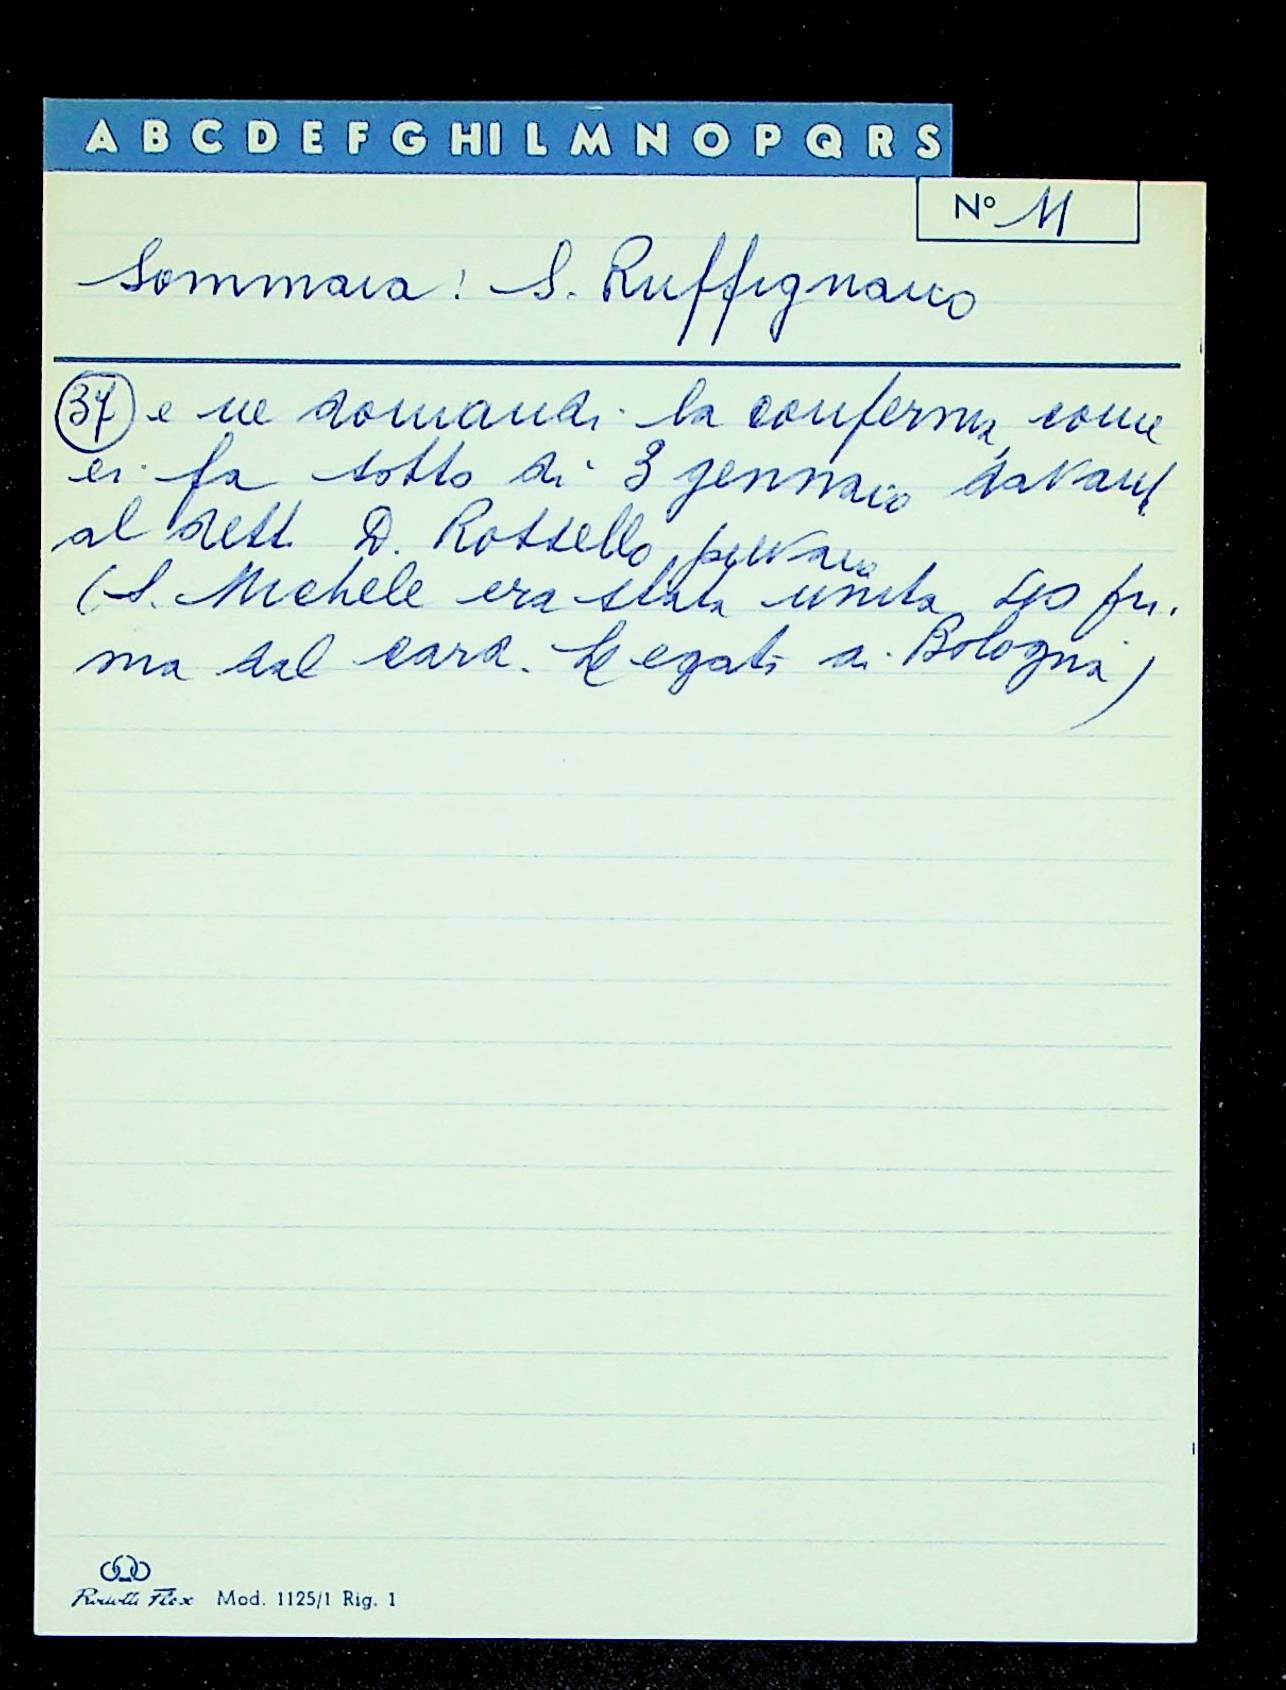 A B C D E F G H I L M N O P Q R S
N° 11
Sommaia: S. Ruffignano
37 e ne domandi la conferma, come
ei fa sotto di 3 gennaio davanti
al dett. D. Rossello
(S. Michele era stata unita
ma dal card. Legati di Bologna)
Mod. 1125/1 Rig. 1